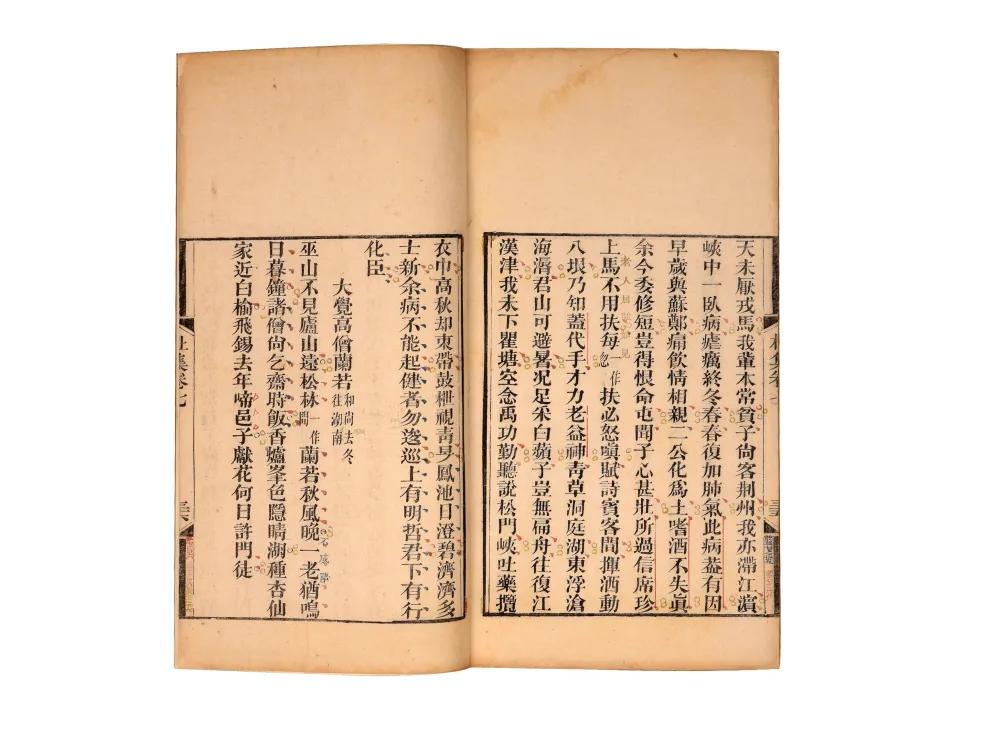 天未厭戎馬我輩本常貧子尙客荆州我亦滯江濵
峽中一臥病瘧癘終冬春春復加肺氣此病葢有因
早歲與蘇鄭痛飮情相親二公化爲土嗜酒不失眞
余今委修短豈得恨命屯聞子心甚壯所過信席珍
上馬不用扶每一作忽扶必怒嗔賦詩賓客間揮洒動
八垠乃知葢代手才力老益神靑草洞庭湖東浮滄
海漘君山可避暑况足采白蘋子豈無扁舟往復江
漢津我未下瞿塘空念禹功勤聽說松門峽吐藥攬
衣巾高秋却束帶鼓枻視靑旻鳳池日澄碧濟濟多
士新余病不能起健者勿逡巡上有明哲君下有行
化臣
大覺高僧蘭若和尙去冬往湖南
巫山不見廬山遠松林一作間蘭若秋風晚一老猶鳴
日暮鐘諸僧尙乞齋時飯香爐峯色隱晴湖種杏仙
家近白榆飛錫去年啼邑子獻花何日許門徒
杜集卷七